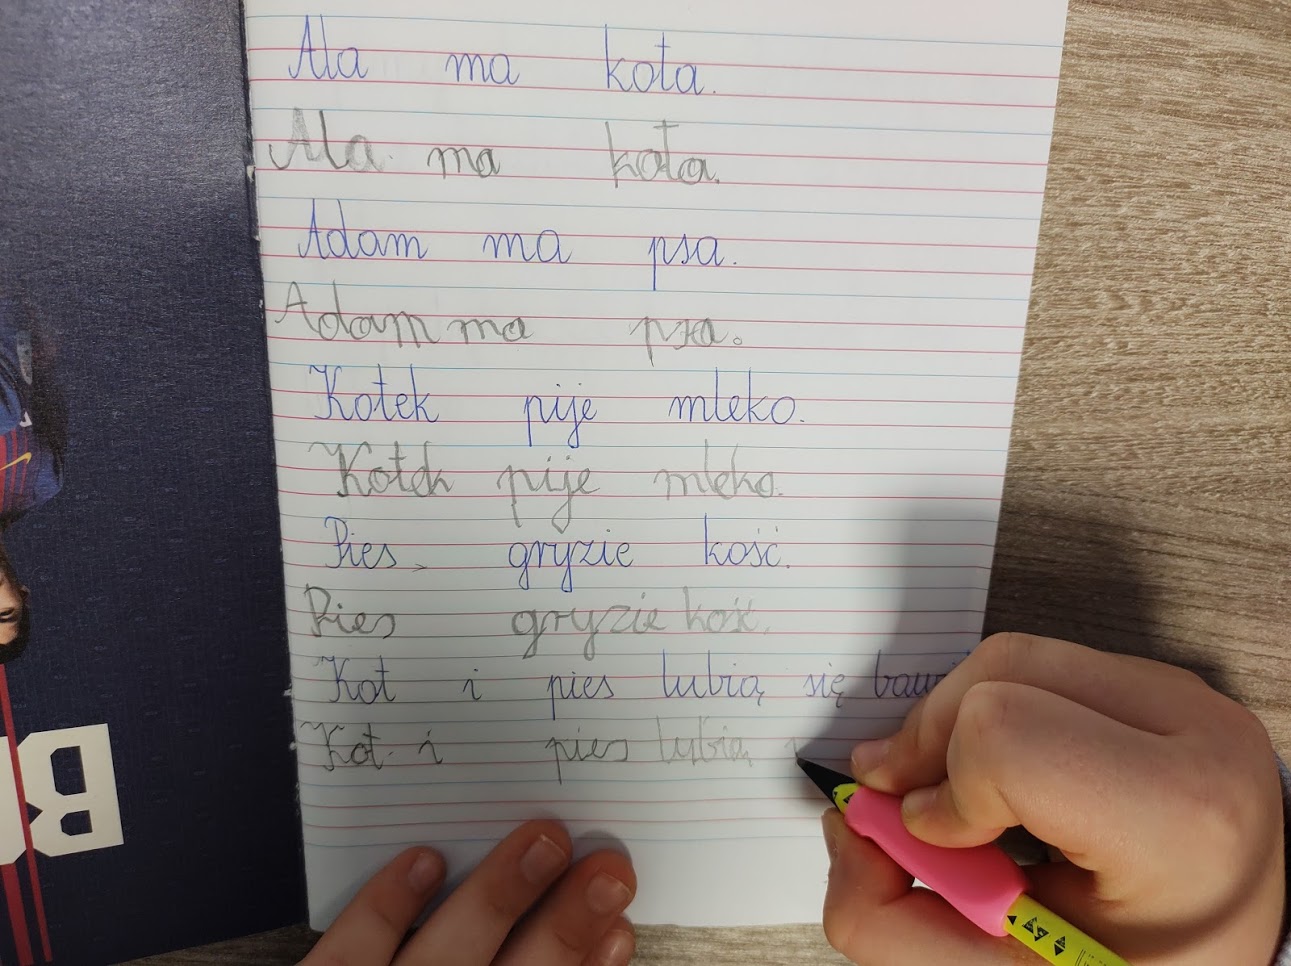 Ala ma kota.
Ala ma kota.
Adam ma psa.
Adam ma psa.
Kotek pije mleko.
Kotek pije mleko.
Pies gryzie kość.
Pies gryzie kość.
Kot i pies lubią się
Kot i pies lubią